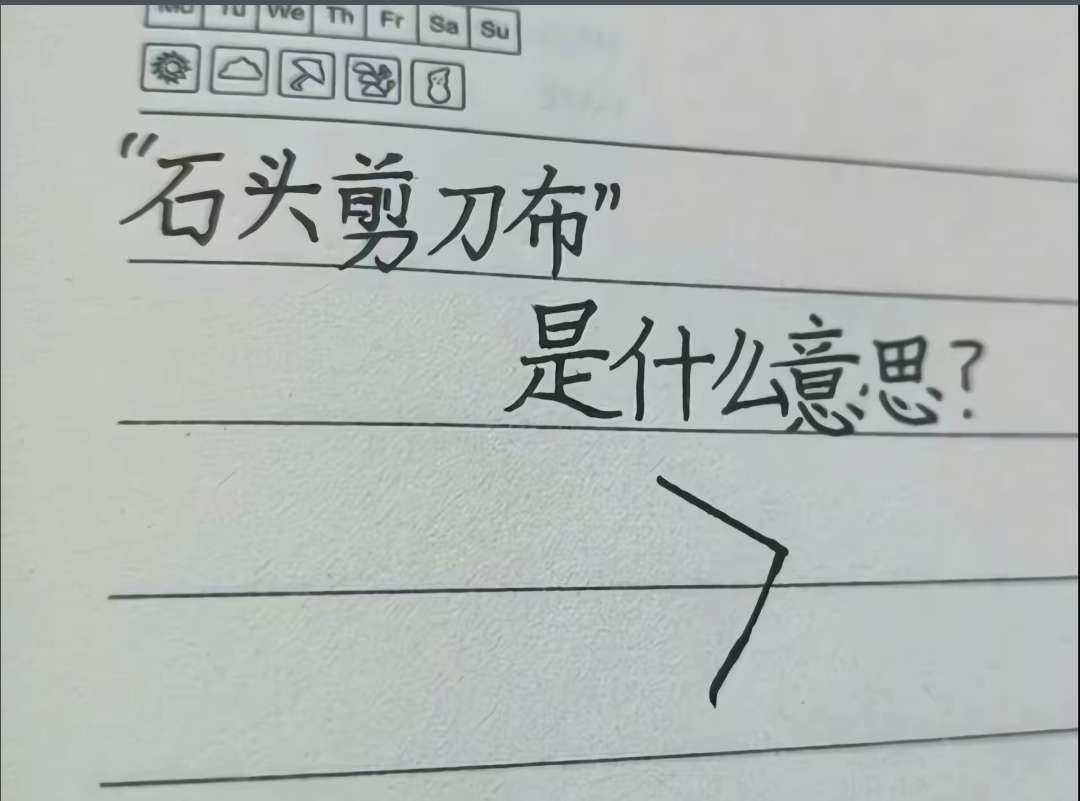 Mo Tu We Th Fr Sa Su
"石头剪刀布"
是什么意思?